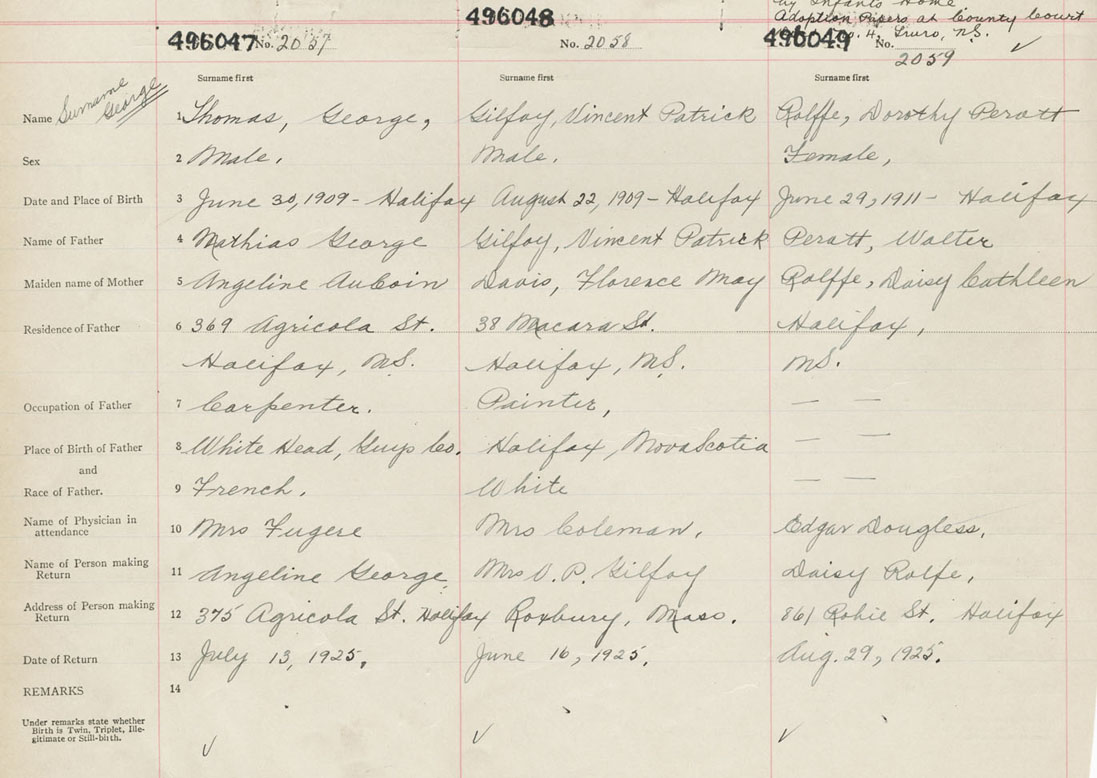 by Infants Home
Adoption Papers at County Court
No. 4, Truro, N.S.
496047 No. 2057 496048 No. 2058 496049 No. 2059
Surname first Surname first Surname first
Surname George
Name 1 Thomas, George, Gilfoy, Vincent Patrick Rolffe, Dorothy Peratt
Sex 2 Male. Male. Female,
Date and Place of Birth 3 June 30, 1909 - Halifax August 22, 1909 - Halifax June 29, 1911 - Halifax
Name of Father 4 Mathias George Gilfoy, Vincent Patrick Peratt, Walter
Maiden name of Mother 5 Angeline AuCoin Davis, Florence May Rolffe, Daisy Cathleen
Residence of Father 6 369 Agricola St. 38 Macara St. Halifax,
Halifax, N.S. Halifax, N.S. N.S.
Occupation of Father 7 Carpenter. Painter, — —
Place of Birth of Father 8 White Head, Guys Co. Halifax, Nova Scotia — —
and
Race of Father. 9 French. White — —
Name of Physician in
attendance 10 Mrs Fugere Mrs Coleman, Edgar Dougless,
Name of Person making
Return 11 Angeline George Mrs V. P. Gilfoy Daisy Rolfe,
Address of Person making
Return 12 375 Agricola St. Halifax Roxbury, Mass. 861 Robie St. Halifax
Date of Return 13 July 13, 1925, June 16, 1925, Aug. 29, 1925.
REMARKS 14
Under remarks state whether
Birth is Twin, Triplet, Ille-
gitimate or Still-birth.